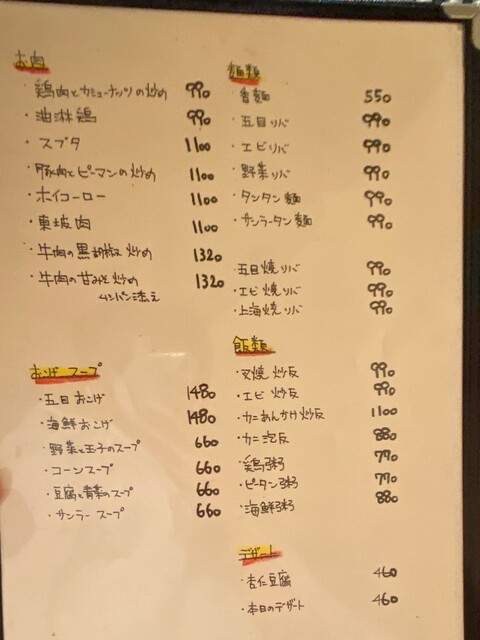 お肉
・鶏肉とカシューナッツの炒め 990
・油淋鶏 990
・スブタ 1100
・豚肉とピーマンの炒め 1100
・ホイコーロー 1100
・東坡肉 1100
・牛肉の黒胡椒炒め 1320
・牛肉の甘みそ炒め 1320
ムシパン添え
おこげ スープ
・五目おこげ 1480
・海鮮おこげ 1480
・野菜と玉子のスープ 660
・コーンスープ 660
・豆腐と青菜のスープ 660
・サンラースープ 660
麺類
・香麺 550
・五目ソバ 990
・エビソバ 990
・野菜ソバ 990
・タンタン麺 990
・サンラータン麺 990
・五目焼ソバ 990
・エビ焼ソバ 990
・上海焼ソバ 990
飯類
・叉焼炒反 990
・エビ炒反 990
・カニあんかけ炒反 1100
・カニ泡反 880
・鶏粥 770
・ピータン粥 770
・海鮮粥 880
デザート
・杏仁豆腐 460
・本日のデザート 460